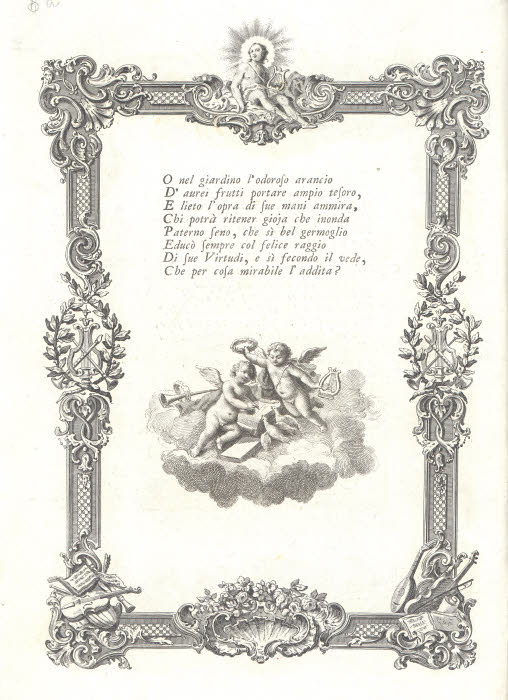 O nel giardino l'odoroſo arancio
D' aurei frutti portare ampio teſoro,
E lieto l'opra di ſue mani ammira,
Chi potrà ritener gioja che inonda
Paterno ſeno, che sì bel germoglio
Educò ſempre col felice raggio
Di ſue Virtudi, e sì fecondo il vede,
Che per coſa mirabile l'addita?